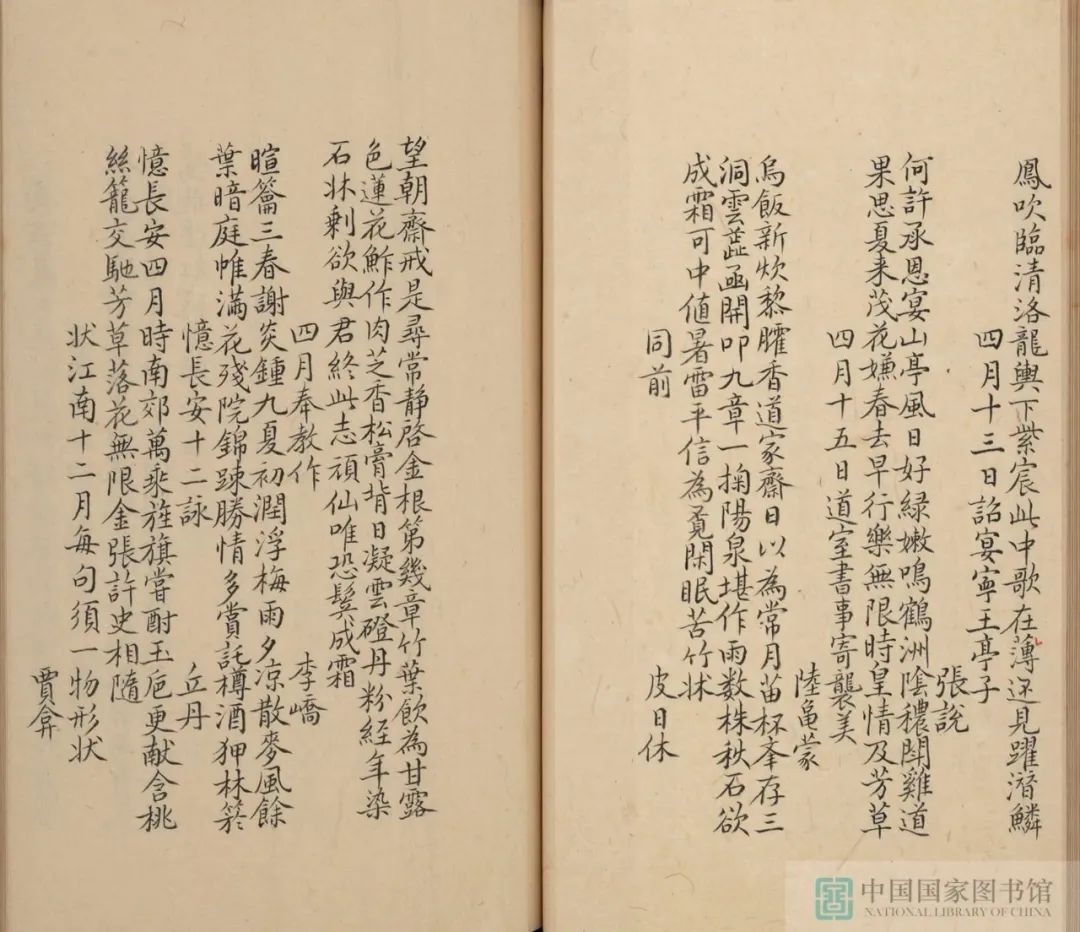 鳳吹臨清洛龍輿下紫宸此中歌在薄还見躍潛鱗
四月十三日詔宴寧王亭子
張說
何許承恩宴山亭風日好緑嫩鳴鶴洲陰穠閗雞道
果思夏来茂花嫌春去早行樂無限時皇情及芳草
四月十五日道室書事寄襲美
陸亀蒙
烏飯新炊黎臛香道家齋日以為常月苗杯擧存三
洞雲蕋函開叩九章一掬陽泉堪作雨数株秩石欲
成霜可中値暑雷平信為覔閑眠苦竹牀
同前
皮日休
望朝齋戒是尋常静啓金根第幾章竹葉飲為甘露
色蓮花鮓作肉芝香松膏背日凝雲磴丹粉経年染
石牀剩欲與君終此志頑仙唯恐鬂成霜
四月奉教作
李嶠
暄籥三春謝炎鍾九夏初潤浮梅雨夕凉散麥風餘
葉暗庭帷満花殘院錦踈勝情多賞託樽酒狎林箊
憶長安十二詠
丘丹
憶長安四月時南郊萬乘旌旗嘗酎玉卮更献含桃
絲籠交馳芳草落花無限金張許史相隨
状江南十二月每句須一物形状
賈弇
中国国家图书馆
NATIONAL LIBRARY OF CHINA